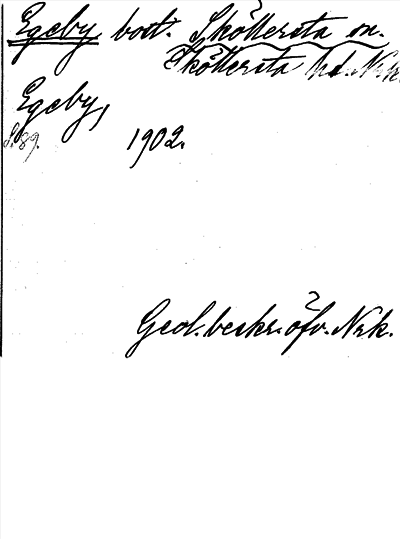 Egeby, bost. Sköllersta sn.
Sköllersta hd. Nrk.
Egeby,
S. 89. 1902.
Geol. beskr. öfv. Nrk.